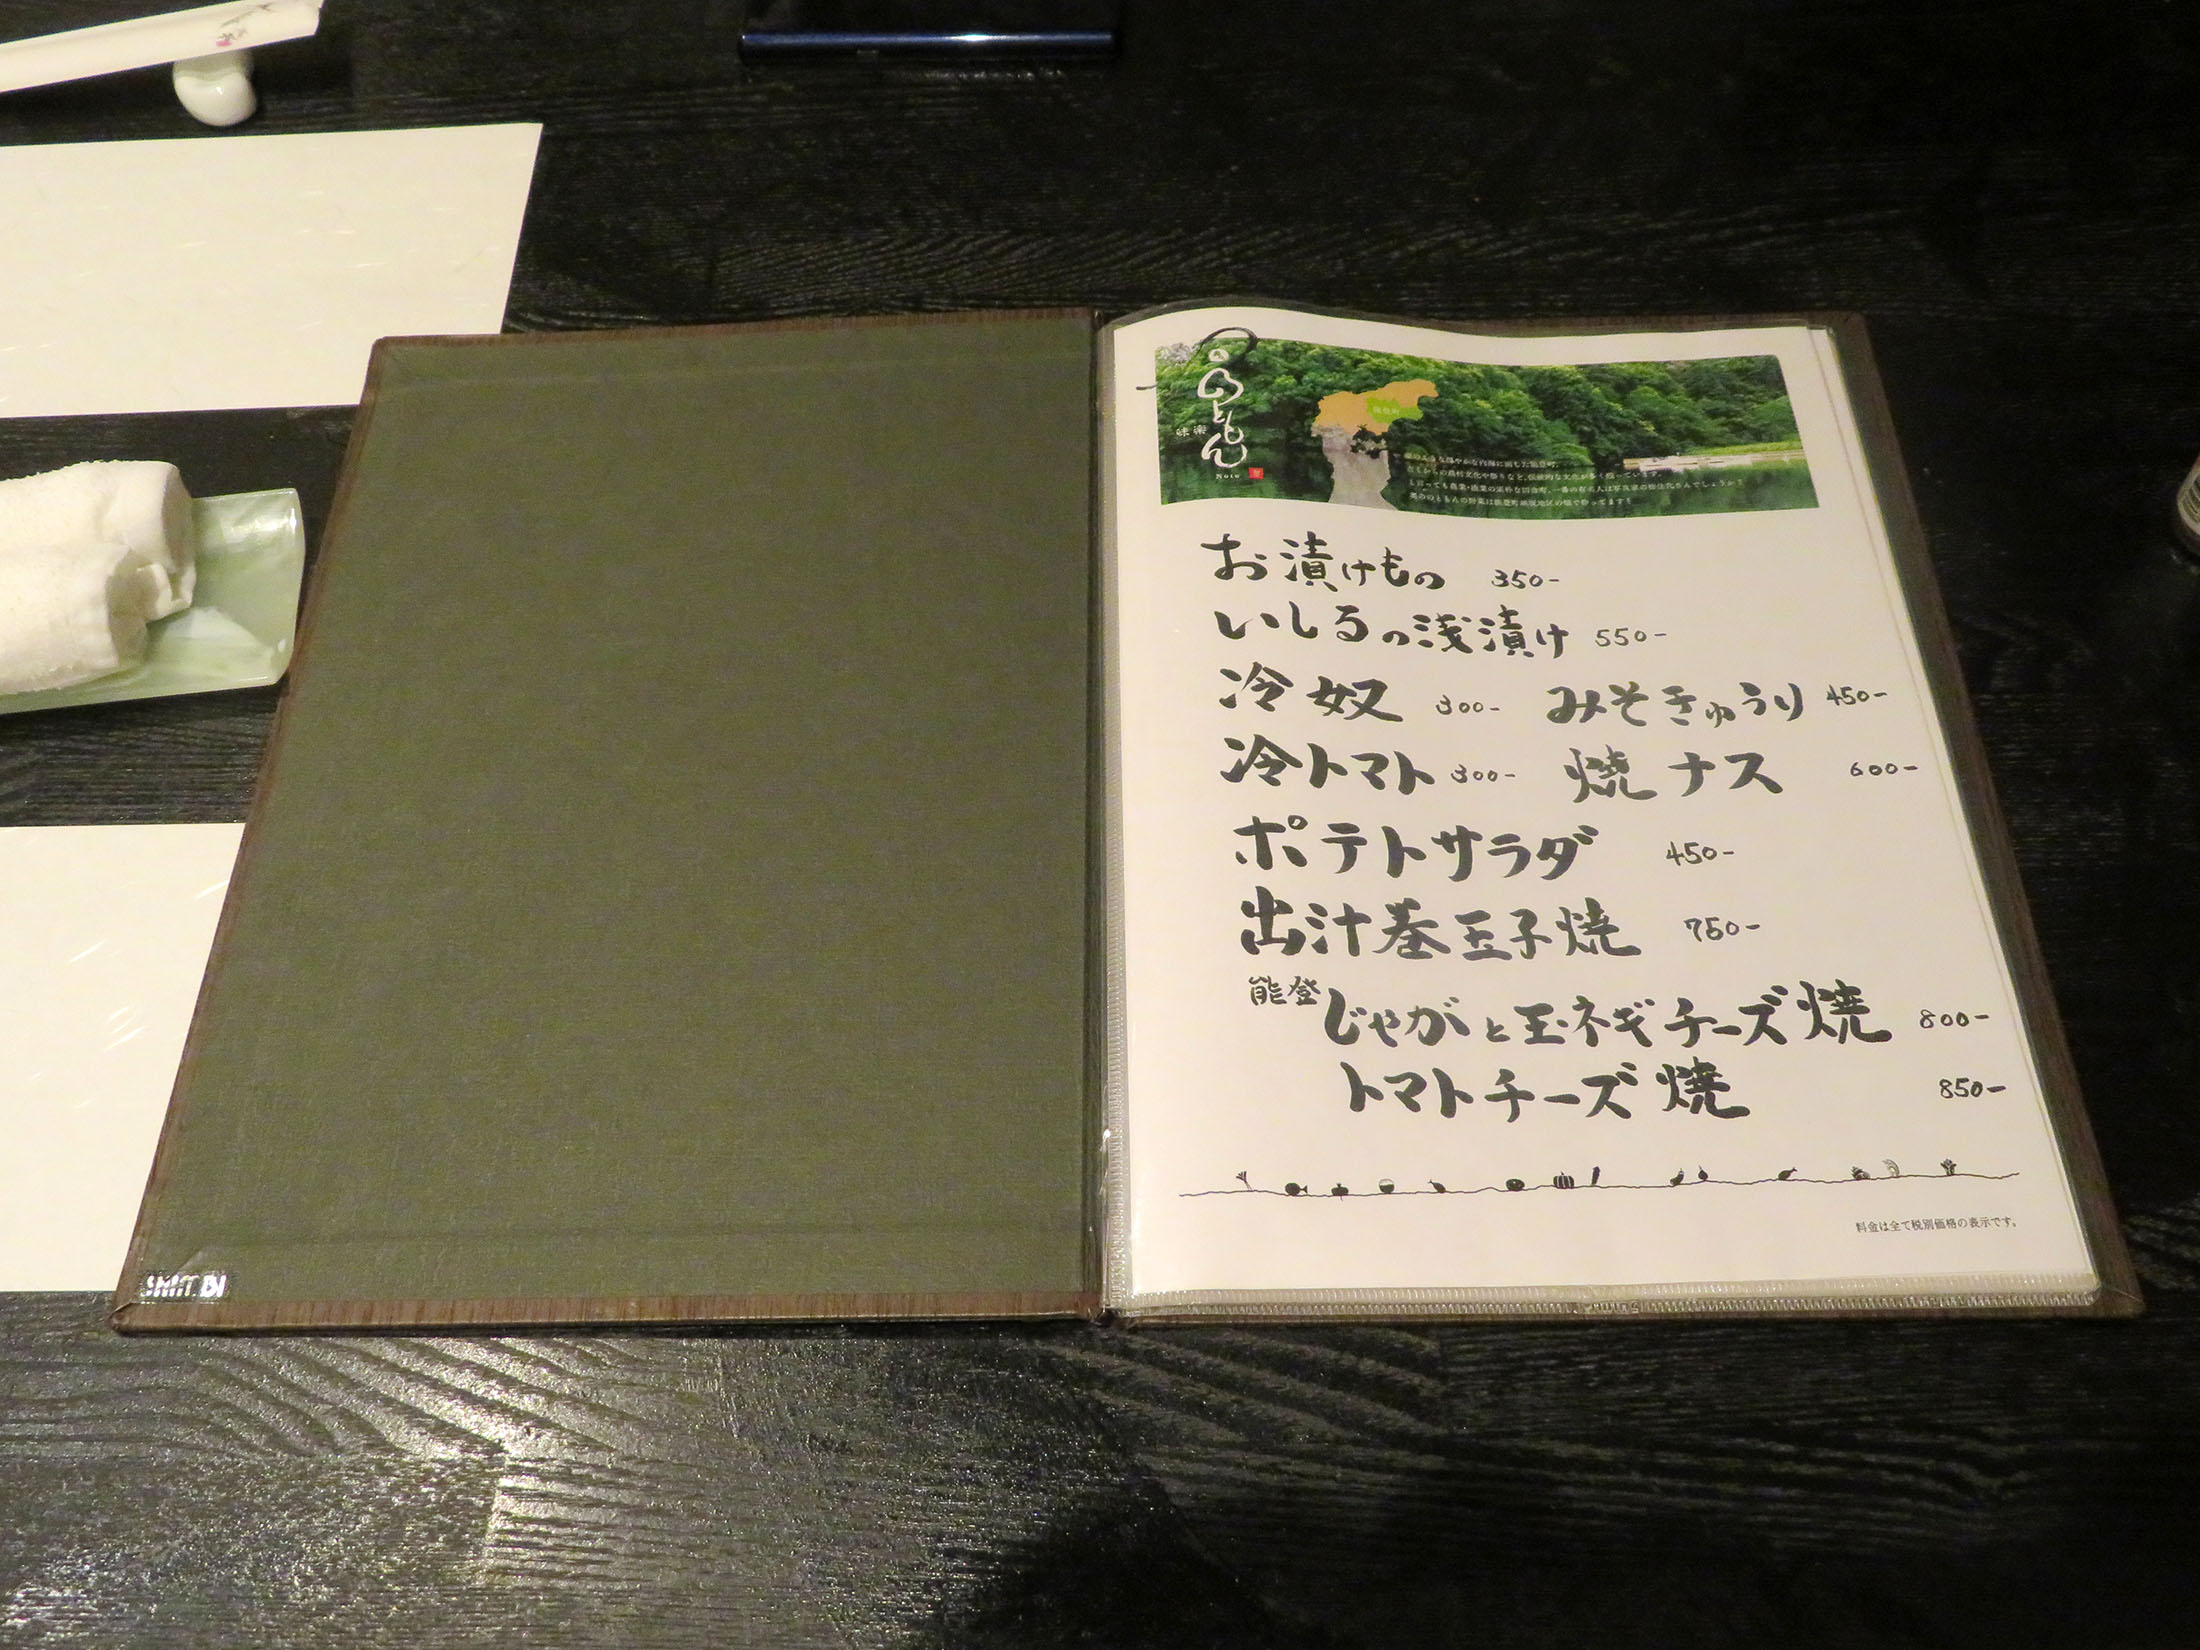 のともん
味楽
Noto
能登町
お漬けもの 350-
いしるの浅漬け 550-
冷奴 300- みそきゅうり 450-
冷トマト 300- 焼ナス 600-
ポテトサラダ 450-
出汁巻玉子焼 750-
能登じゃがと玉ネギチーズ焼 800-
トマトチーズ焼 850-
料金は全て税別価格の表示です。